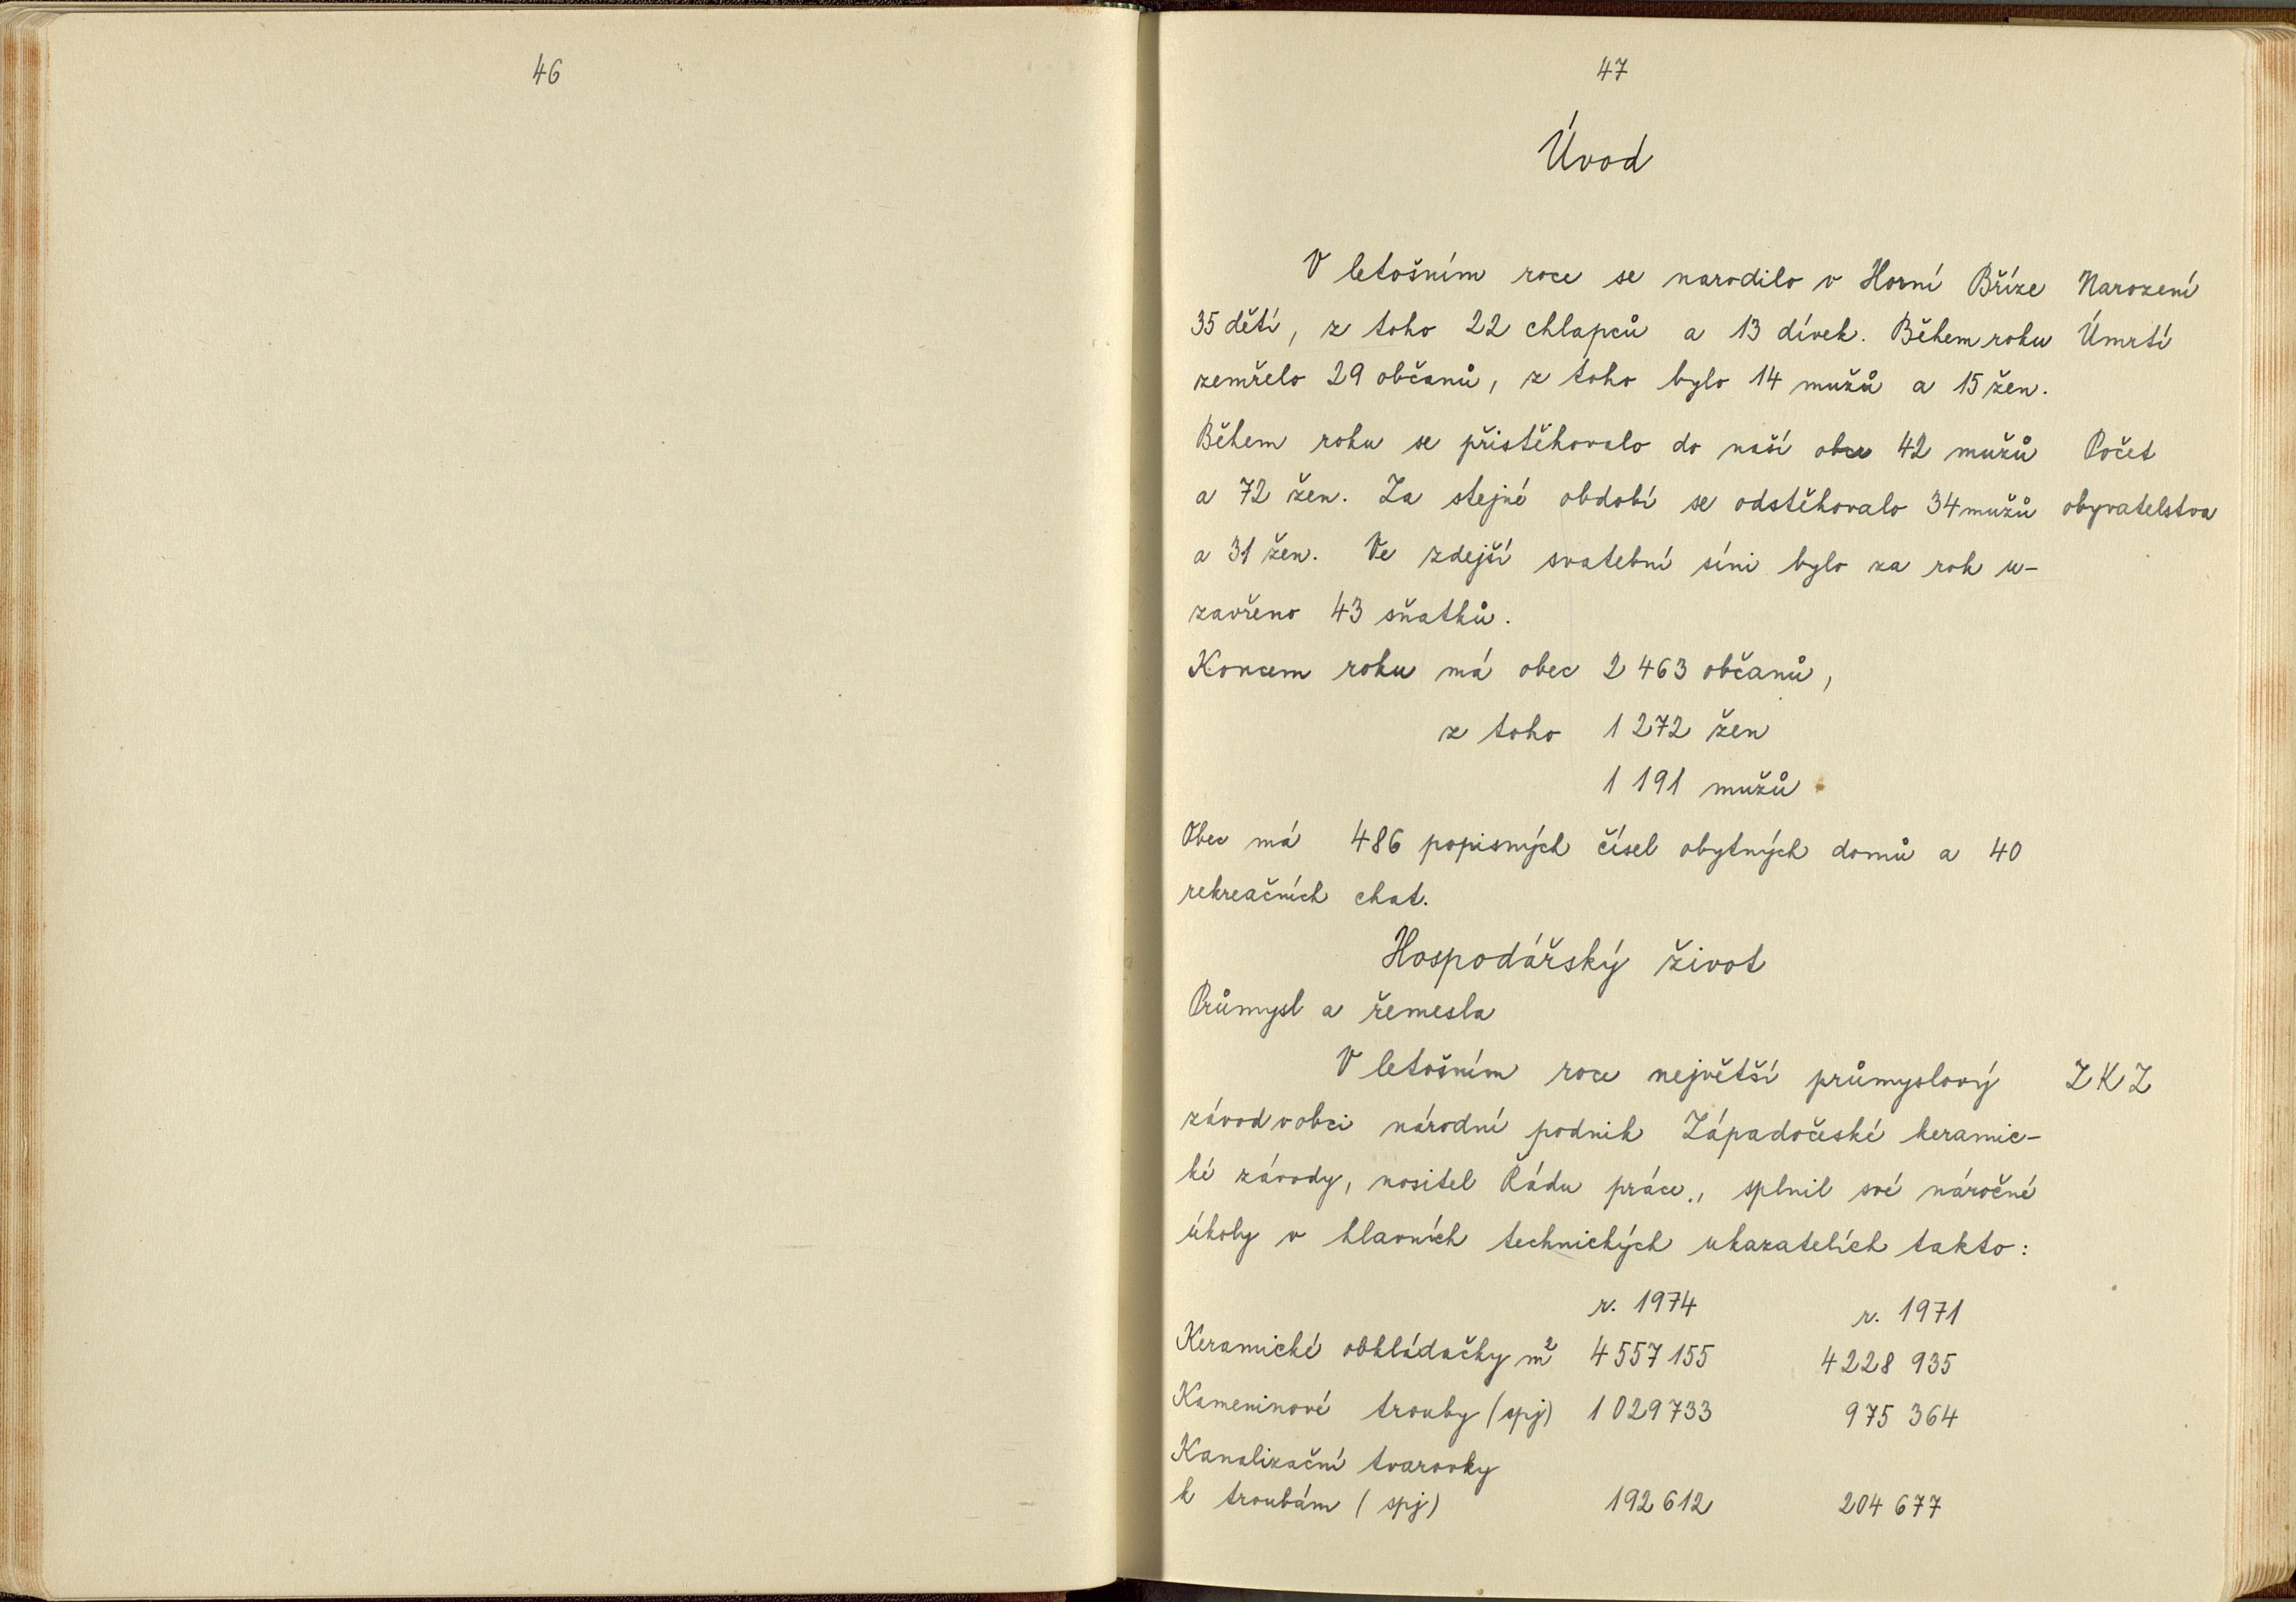 46
47
Úvod
V letošním roce se narodilo v Horní Bříze Narození
35 dětí, z toho 22 chlapců a 13 dívek. Během roku Úmrtí
zemřelo 29 občanů, z toho bylo 14 mužů a 15 žen.
Během roku se přistěhovalo do naší obce 42 mužů Počet
a 72 žen. Za stejné období se odstěhovalo 34 mužů obyvatelstva
a 31 žen. Ve zdejší svatební síni bylo za rok u-
zavřeno 43 sňatků.
Koncem roku má obec 2 463 občanů,
z toho 1 272 žen
1 191 mužů
Obec má 486 popisných čísel obytných domů a 40
rekreačních chat.
Hospodářský život
Průmysl a řemesla
V letošním roce největší průmyslový ZKZ
závod v obci národní podnik Západočeské keramic-
ké závody, nositel Řádu práce, splnil své náročné
úkoly v hlavních technických ukazatelích takto:
r. 1974 r. 1971
Keramické obkládačky m² 4 557 155 4 228 935
Kameninové trouby (spj) 1 029 733 975 364
Kanalizační tvarovky
k troubám (spj) 192 612 204 677